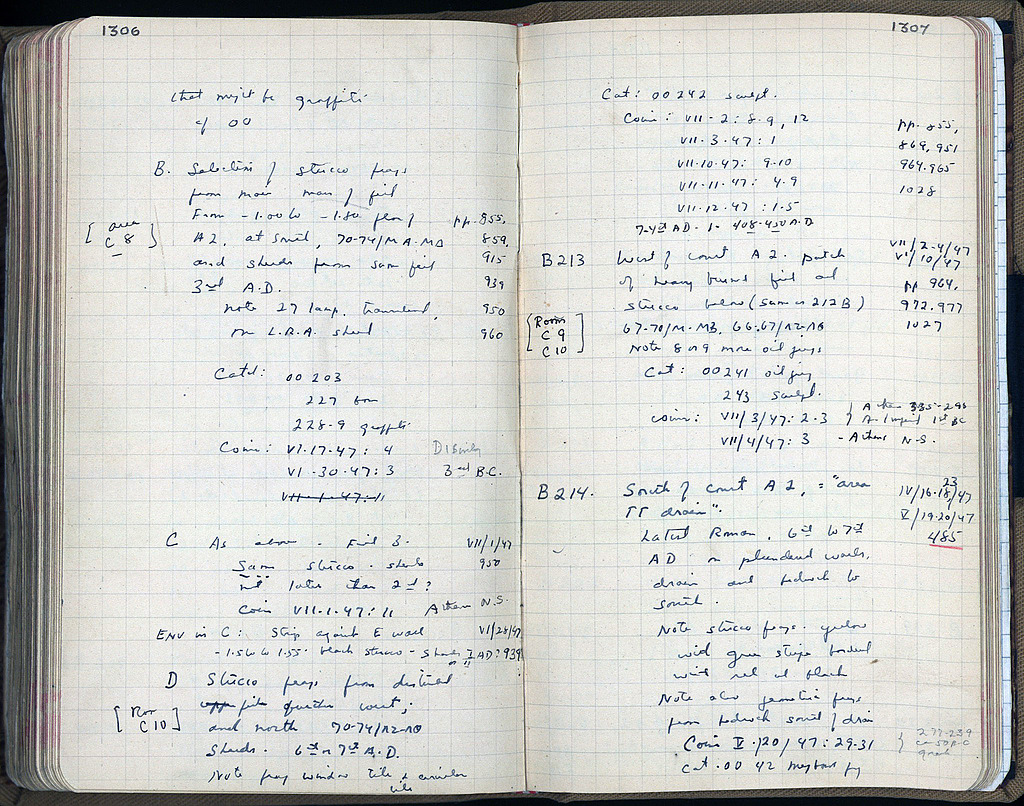 1306
that might be graffiti
of OO
B. Selection of stucco frags
from main mass of fill
From -1.00 to -1.80 floor of pp. 855,
[area C 8] A2, at South, 70-74/MA-MD 859,
and sherds from same fill 915
3rd A.D. 939
Note 27 lamp, 950
on L.R.A. sherd 960
Catd: OO 203
227
228-9 graffiti
Coins: VI-17-47: 4
VI-30-47: 3 3rd B.C.
VII-1-47: 11
C As above. Fill 3. VII/1/47
Same stucco. sherds 950
not later than 2nd?
Coin VII-1-47: 11 Athens N.S.
ENV in C: Strip against E wall VI/28/47
-1.50 to 1.55. black stucco - Sherds I AD? 939
or II
D Stucco frags from disturbed
fill further west;
[Room C 10] and north 70-74/
Sherds. 6th or 7th A.D.
Note frag window tile & circular
tile
1307
Cat: OO 242 sculpt.
Coins: VII-2: 8-9, 12 pp. 855,
VII-3-47: 1 869, 951
VII-10-47: 9-10 964, 965
VII-11-47: 4-9 1028
VII-12-47: 1-5
408-450 A.D
B213 West of court A 2. patch VII/2-4/47
of heavy burnt fill and VI/10/47
stucco below (same as 212 B) pp 964,
[Rooms C 9 C 10] 67-70/M-MB, 66-67/ 972, 977
Note 8 or 9 more oil jugs 1027
Cat: OO241 oil jug
243 sculpt.
Coins: VII/3/47: 2-3 } Athens 335-295
1st BC
VII/4/47: 3 - Athens N.S.
B214. South of court A 2, = "area IV/16-18, 23/47
TT drain". V/19-20/47
Latest Roman, 6th to 7th 485
AD in plundered walls,
drain and bedrock to
south.
Note stucco frags. yellow
with green stripe bordered
with red and black
Note also geometric frags
from bedrock south of drain
Coin V-/20/47: 29-31 } 277-239
Cat. OO 42